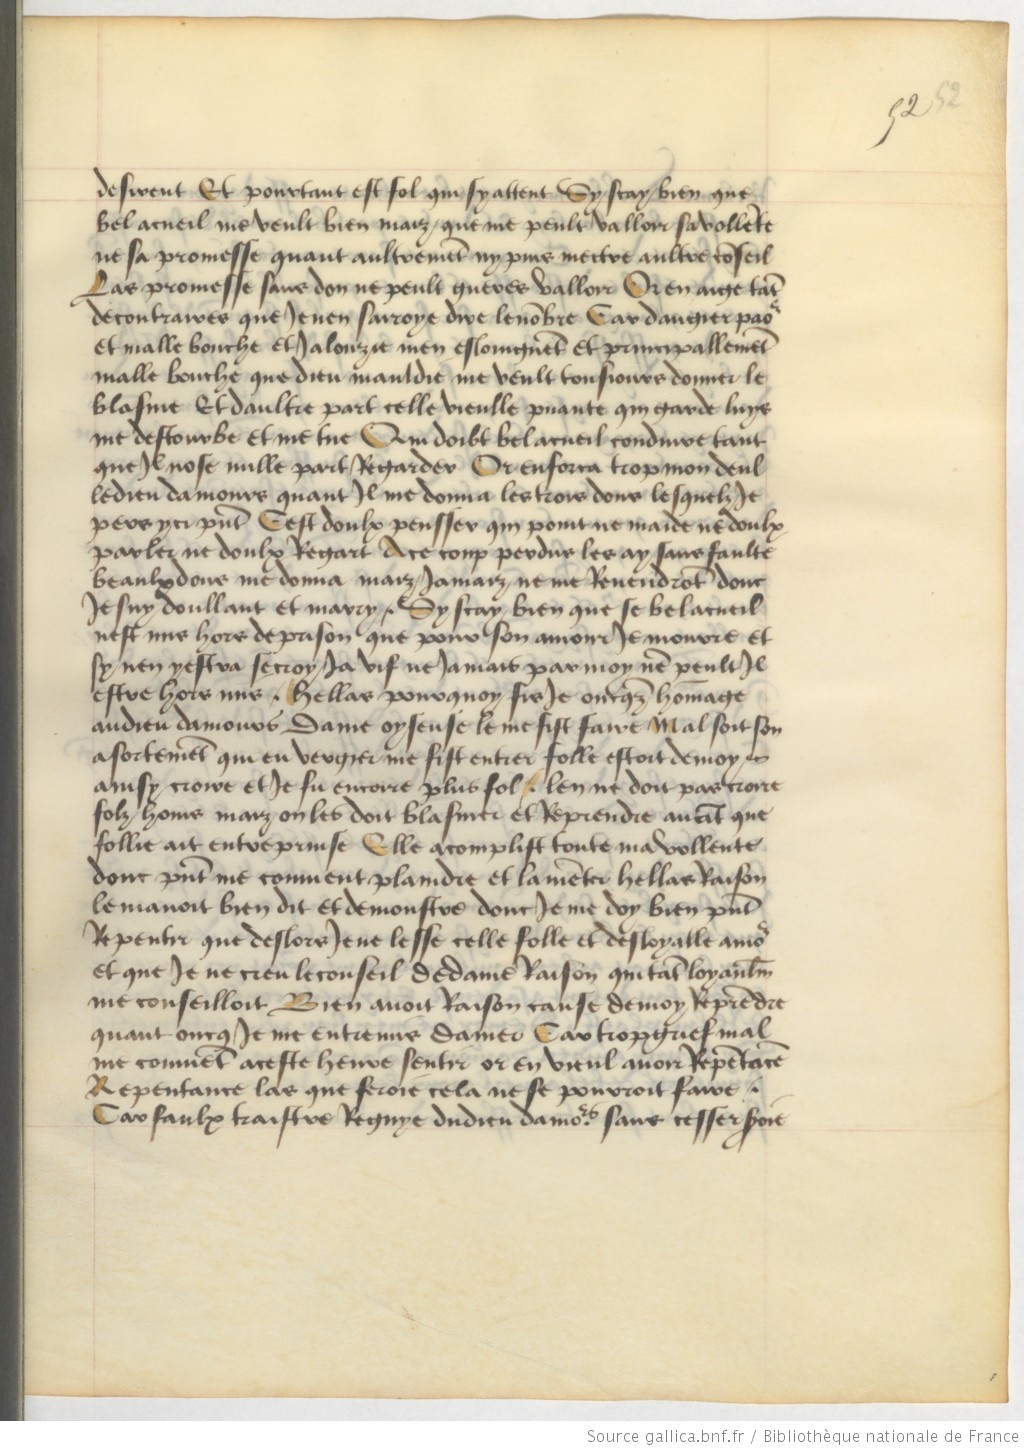 52 52
desirent Et pourtant est fol qui sy attent Sy scay bien que
bel acueil me veult bien maiz que me peult valloir sa vollẽte
ne sa promesse quant aultremẽt ny puis mectre aultre cõseil
Las promesse sans don ne peult gueres valloir Or en ai ge tãt
de contraires que Je nen sarroye dire le nõbre Car dangier pao^r
et malle bouche et Jalouzie men esloingnẽt et principallemẽt
malle bouche que dieu mauldie me veult tousiours donner le
blasme Et daultre part celle vieulle puante qui garde luys
me destourbe et me tue Qui doibt bel acueil conduire tant
que Il nose nulle part Regarder Or enforca trop mon deul
le dieu damours quant Il me donna les trois dons lesquelz Je
pers yci pñt Cest doulx pensser qui point ne maide ne doulx
parler ne doulx Regart A ce coup perdus les ay sans faulte
beaulx dons me donna maiz Jamaiz ne me Reuendrõt donc
Je suy doullant et marry . Sy scay bien que se bel acueil
nest mis hors de prison que pour son amour Je mourre et
sy nen ystra se croy Ja vif ne Jamais par moy nẽ peult Il
estre hors mis . Hellas pourquoy fis Je oncqz hõmage
au dieu damours Dame oyseuse le me fist faire Mal soit son
asortemẽt qui eu vergier me fist entrer folle estoit de moy
ainsy croire et Je fu encoire plus fol . len ne doit pas croire
folz homs maiz on les doit blasmer et Reprendre auãt que
follie ait entreprinse Elle acomplist toute ma vollente
donc pñt me conuient plaindre et lamẽter hellas Raison
le mauoit bien dit et demonstre donc Je me doy bien pñt
Repentir que deslors Je ne lesse celle folle et desloyalle amo^r
et que Je ne creu le conseil de dame Raison qui tãt loyaulm̃
me conseilloit Bien auoit Raison cause de moy Reprẽdre
quant oncq Je me entremis damer Car trop grief mal
me conuiẽt a ceste heure sentir or en vieul auoir Repẽtãce
Repentance las que feroie cela ne se pourroit faire .
Car faulx traistre Regnye du dieu damo^rs sans cesser soie
Source gallica.bnf.fr / Bibliothèque nationale de France